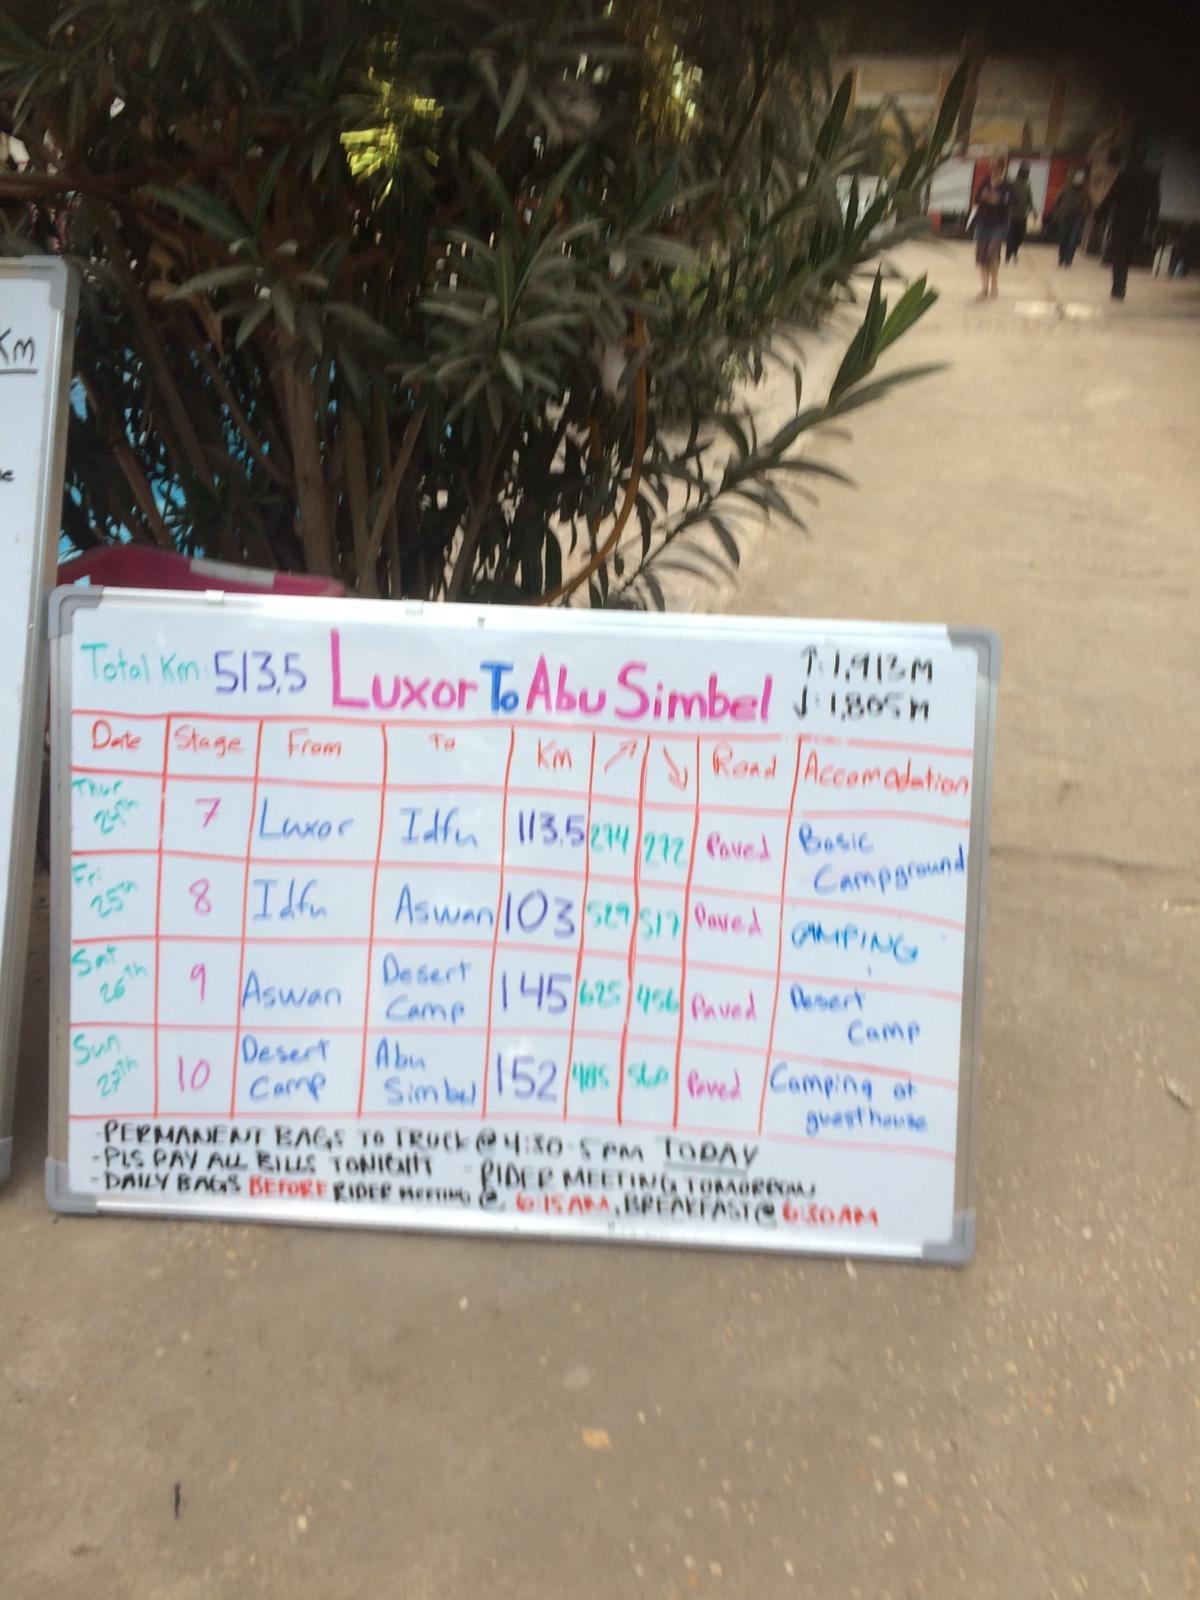 Km
Total Km: 513.5 Luxor To Abu Simbel ↑: 1,913 M
↓: 1,805 M
Date Stage From To Km ↗ ↘ Road Accomodation
Thur 24th 7 Luxor Idfu 113.5 274 272 Paved Basic Campground
Fri 25th 8 Idfu Aswan 103 529 517 Paved CAMPING
Sat 26th 9 Aswan Desert Camp 145 625 456 Paved Desert Camp
Sun 27th 10 Desert Camp Abu Simbel 152 485 560 Paved Camping at guesthouse
-PERMANENT BAGS TO TRUCK @ 4:30-5PM TODAY
-PLS PAY ALL BILLS TONIGHT - RIDER MEETING TOMORROW
-DAILY BAGS BEFORE RIDER MEETING @ 6:15AM, BREAKFAST @ 6:30AM